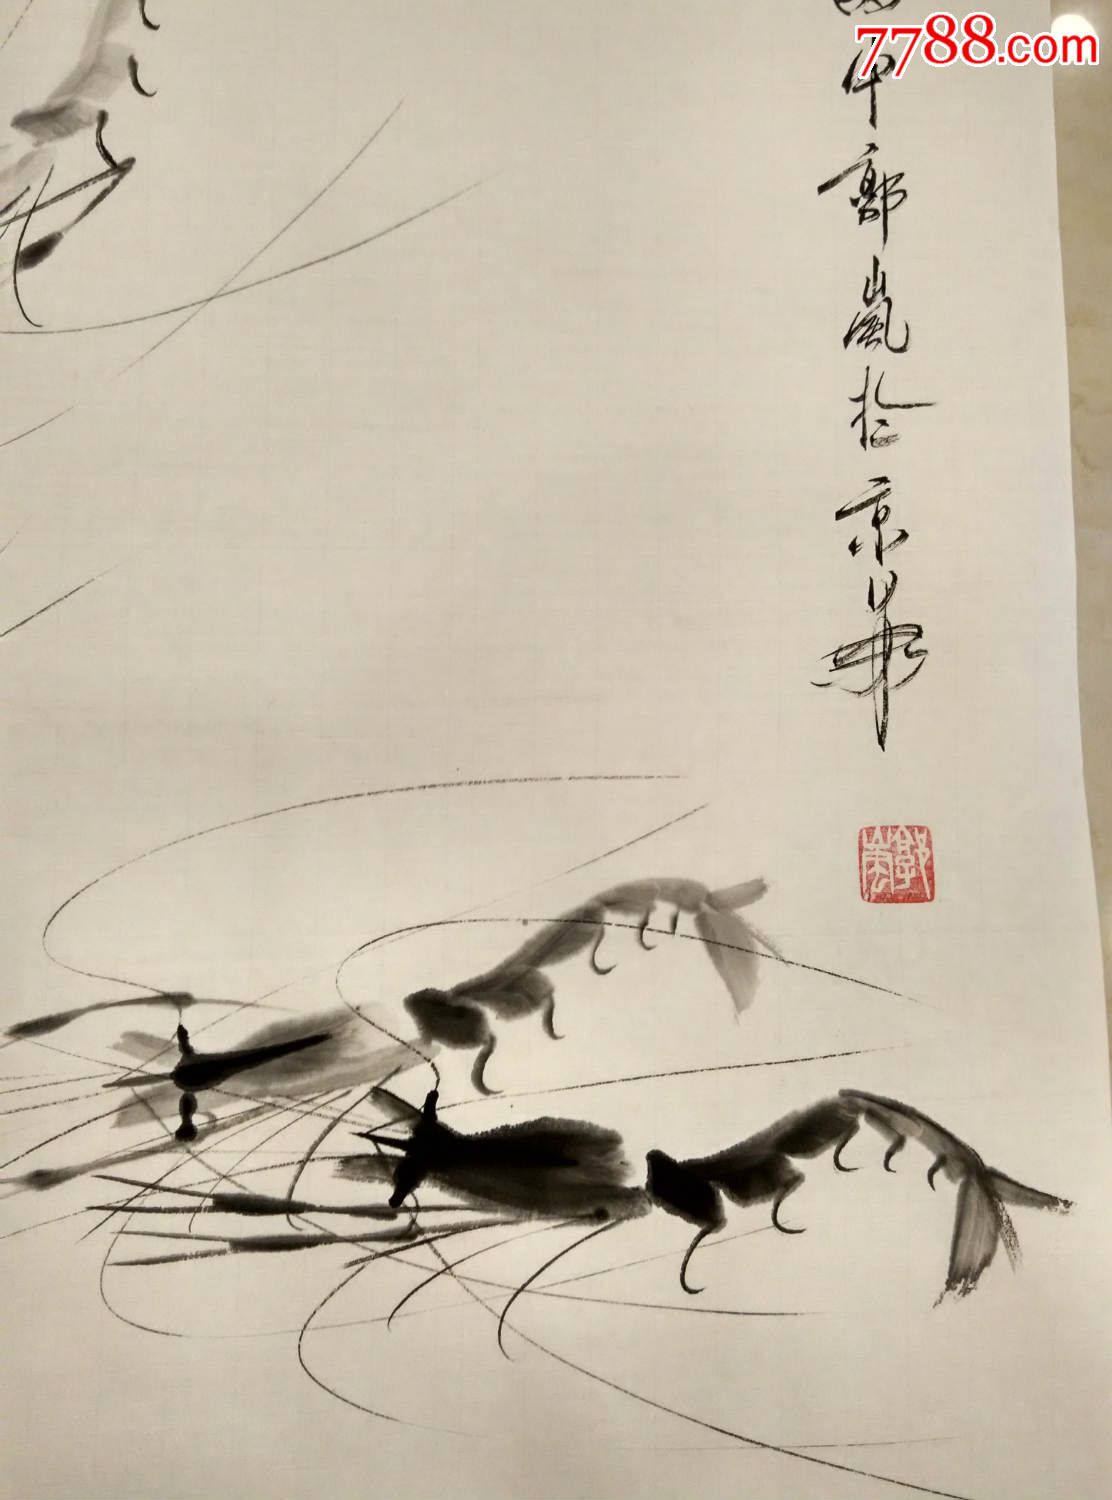 7788.com
申郭嵐於京華
郭嵐